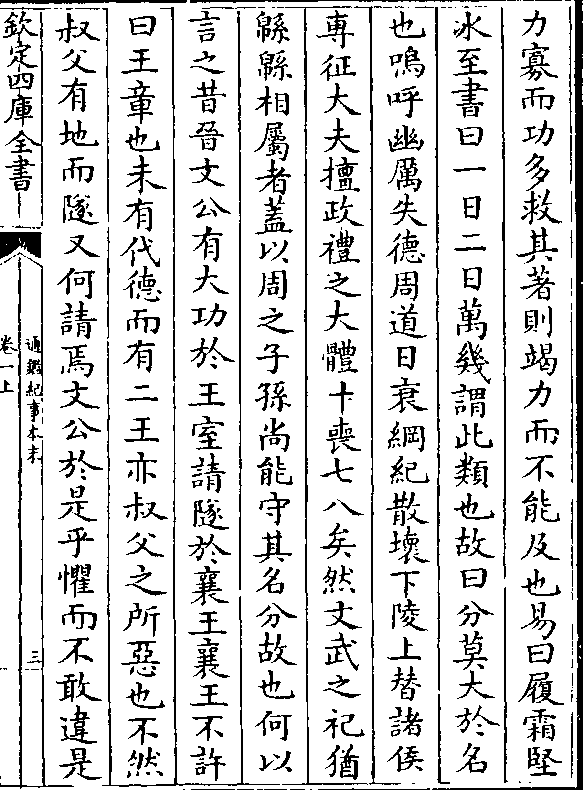 力寡而功多救其著則竭力而不能及也易曰履霜堅
冰至書曰一日二日萬幾謂此類也故曰分莫大於名
也嗚呼幽厲失德周道日衰綱紀散壞下陵上替諸侯
專征大夫擅政禮之大體十喪七八矣然文武之祀猶
緜緜相屬者蓋以周之子孫尚能守其名分故也何以
言之昔晉文公有大功於王室請隧於襄王襄王不許
曰王章也未有代德而有二王亦叔父之所惡也不然
叔父有地而隧又何請焉文公於是乎懼而不敢違是
欽定四庫全書
通鑑紀事本末
卷一上
三